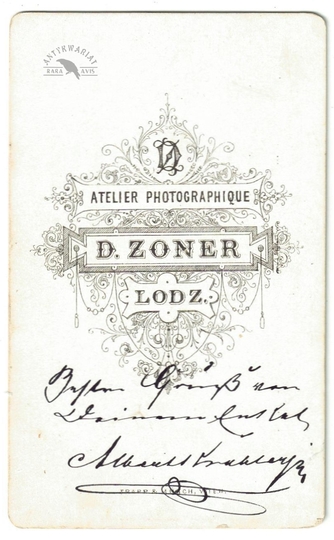 ANTYKWARIAT
RARA AVIS
DZ
ATELIER PHOTOGRAPHIQUE
D. ZONER
LODZ.
Besten Gruß von
Deinem Enkel
Albert